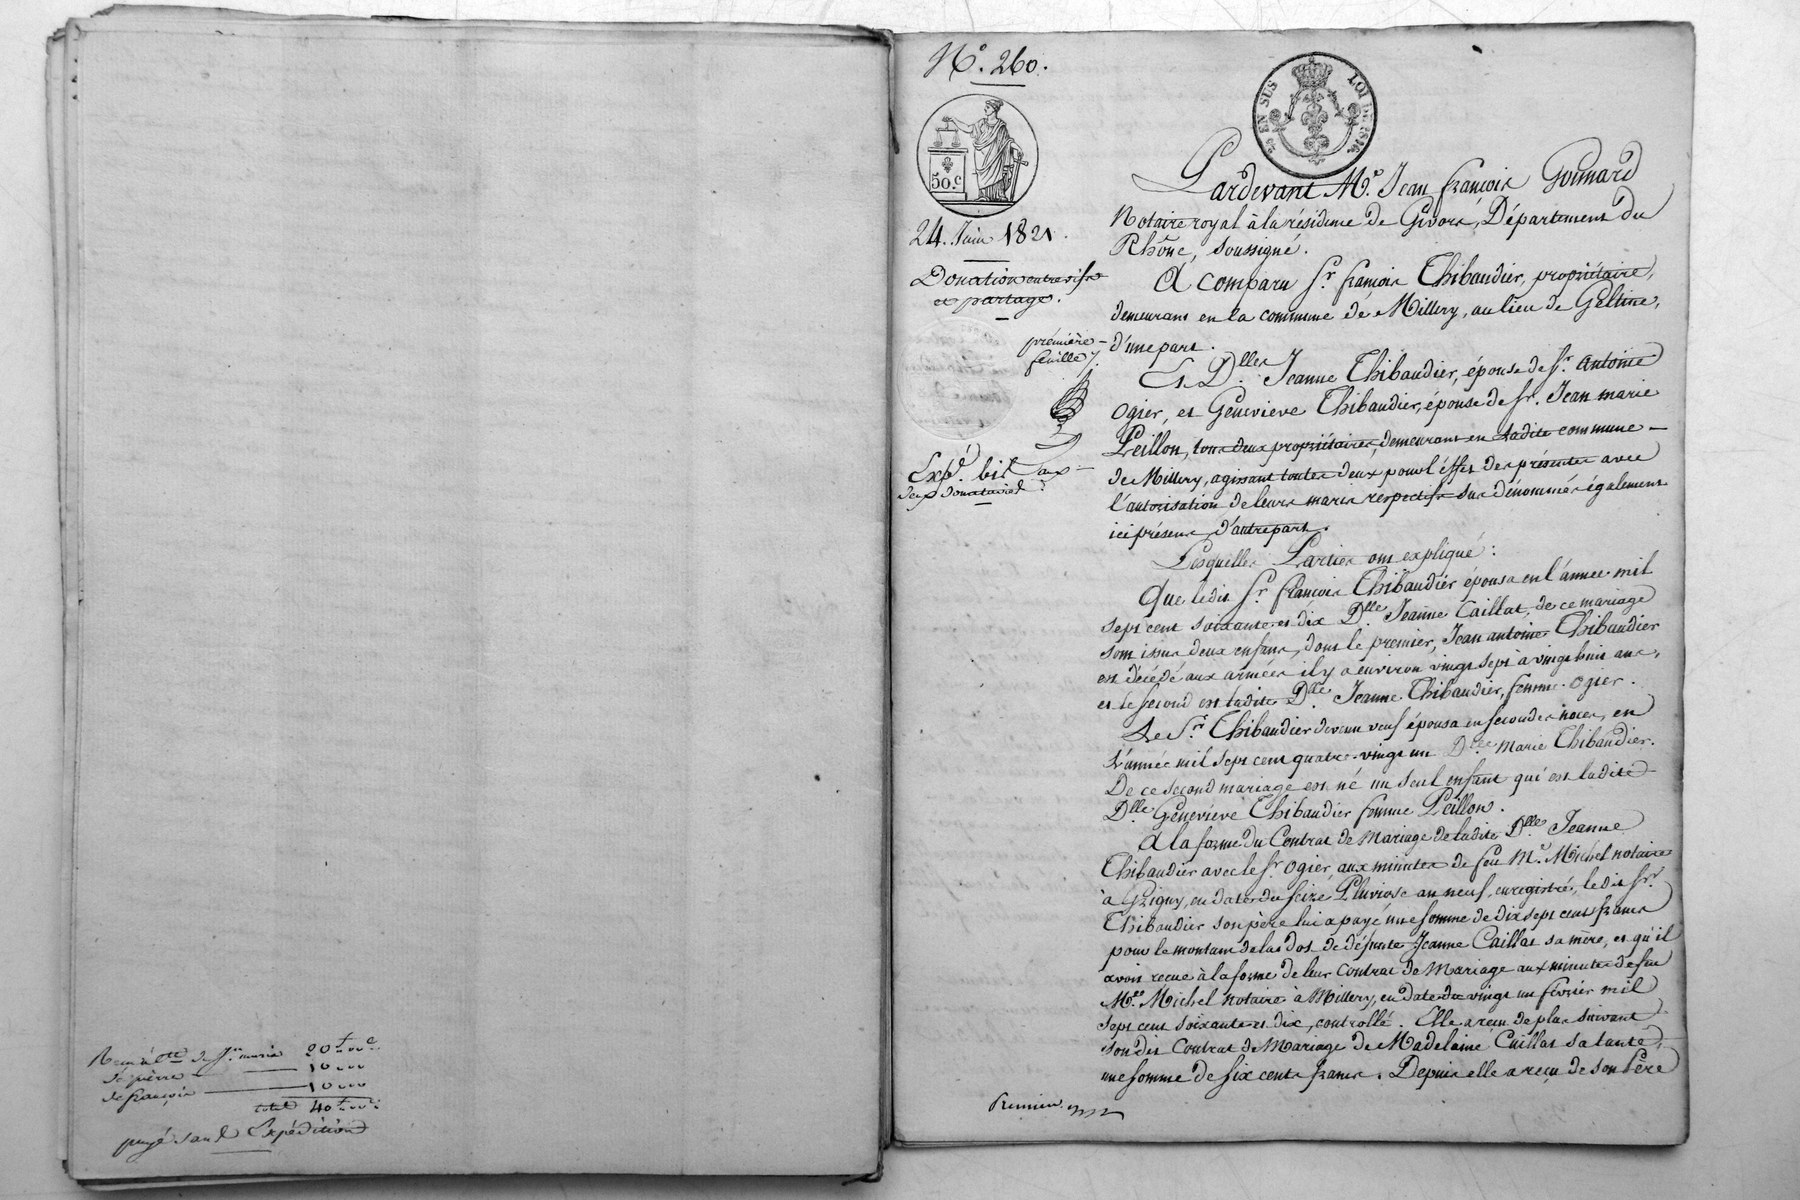 Reçu à cte de Jn marie 20f "" c
de pierre — 10 ""
de françois — 10 ""
total 40f ""
payé sauf l'Expédition
N°. 260.
EN SUS LOI DE 1816
50.c
24. Juin 1821.
Donation entrevifs
et partage.
première
feuille /.
Expé. bis aux
deux donataires
Pardevant Me. Jean françois Goinnard
Notaire royal à la résidence de Givors, Département du
Rhône, soussigné.
A comparu Sr. françois Thibaudier, propriétaire,
demeurant en la commune de Millery, au lieu de Geltine,
d'une part.
Et Dlles Jeanne Thibaudier, épouse de Sr. Antoine
Ogier, et Geneviève Thibaudier, épouse de Sr. Jean marie
Peillon, tous deux propriétaires, demeurant en ladite commune
de Millery, agissant toutes deux pour l'effet des présentes avec
l'autorisation de leurs maris respectifs sus dénommés également
ici présens d'autre part.
Lesquelles Parties ont expliqué :
Que ledit Sr. françois Thibaudier épousa en l'année mil
sept cent soixante et dix Dlle Jeanne Caillat, de ce mariage
sont issus deux enfans, dont le premier, Jean antoine Thibaudier
est décédé aux armées il y a environ vingt sept à vingt huit ans,
et le second est ladite Dlle Jeanne Thibaudier, femme Ogier.
Le Sr. Thibaudier devenu veuf épousa en secondes noces, en
l'année mil sept cent quatre-vingt un Dlle Marie Thibaudier.
De ce second mariage est né un seul enfant qui est ladite
Dlle Geneviève Thibaudier femme Peillon.
A la forme du Contrat de Mariage de ladite Dlle Jeanne
Thibaudier avec le Sr Ogier, aux minutes de feu Me Michel notaire
à Grigny, en date du seize Pluviose an neuf, enregistré, ledit Sr.
Thibaudier son père lui a payé une somme de dix sept cent francs
pour le montant de la dot de défunte Jeanne Caillat sa mère, et qu'il
avoit reçue à la forme de leur Contrat de Mariage aux minutes de feu
Me Michel notaire à Millery, en date du vingt un février mil
sept cent soixante et dix, controllé. Elle a reçu de plus suivant
son dit Contrat de Mariage de Madelaine Caillat sa tante,
une somme de six cents francs. Depuis elle a reçu de son Père
Premier